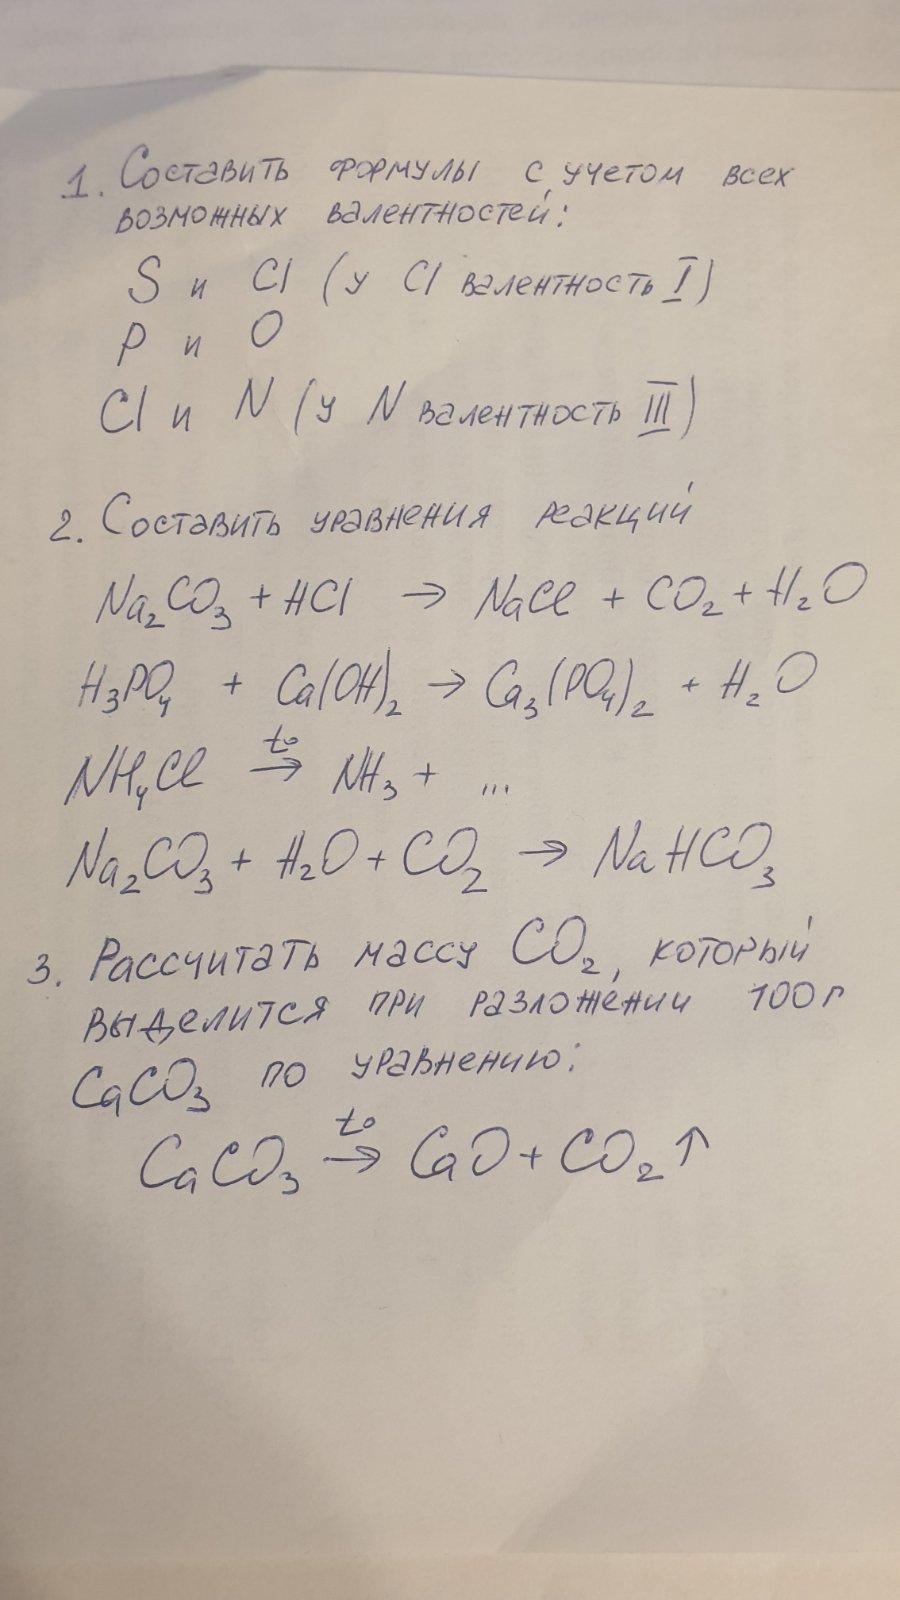 1. Составить формулы с учетом всех
возможных валентностей:
S и Cl (у Cl валентность I)
P и O
Cl и N (у N валентность III)
2. Составить уравнения реакций
Na₂CO₃ + HCl → NaCl + CO₂ + H₂O
H₃PO₄ + Ca(OH)₂ → Ca₃(PO₄)₂ + H₂O
NH₄Cl →(t°) NH₃ + ...
Na₂CO₃ + H₂O + CO₂ → NaHCO₃
3. Рассчитать массу CO₂, который
выделится при разложении 100г
CaCO₃ по уравнению:
CaCO₃ →(t°) CaO + CO₂↑